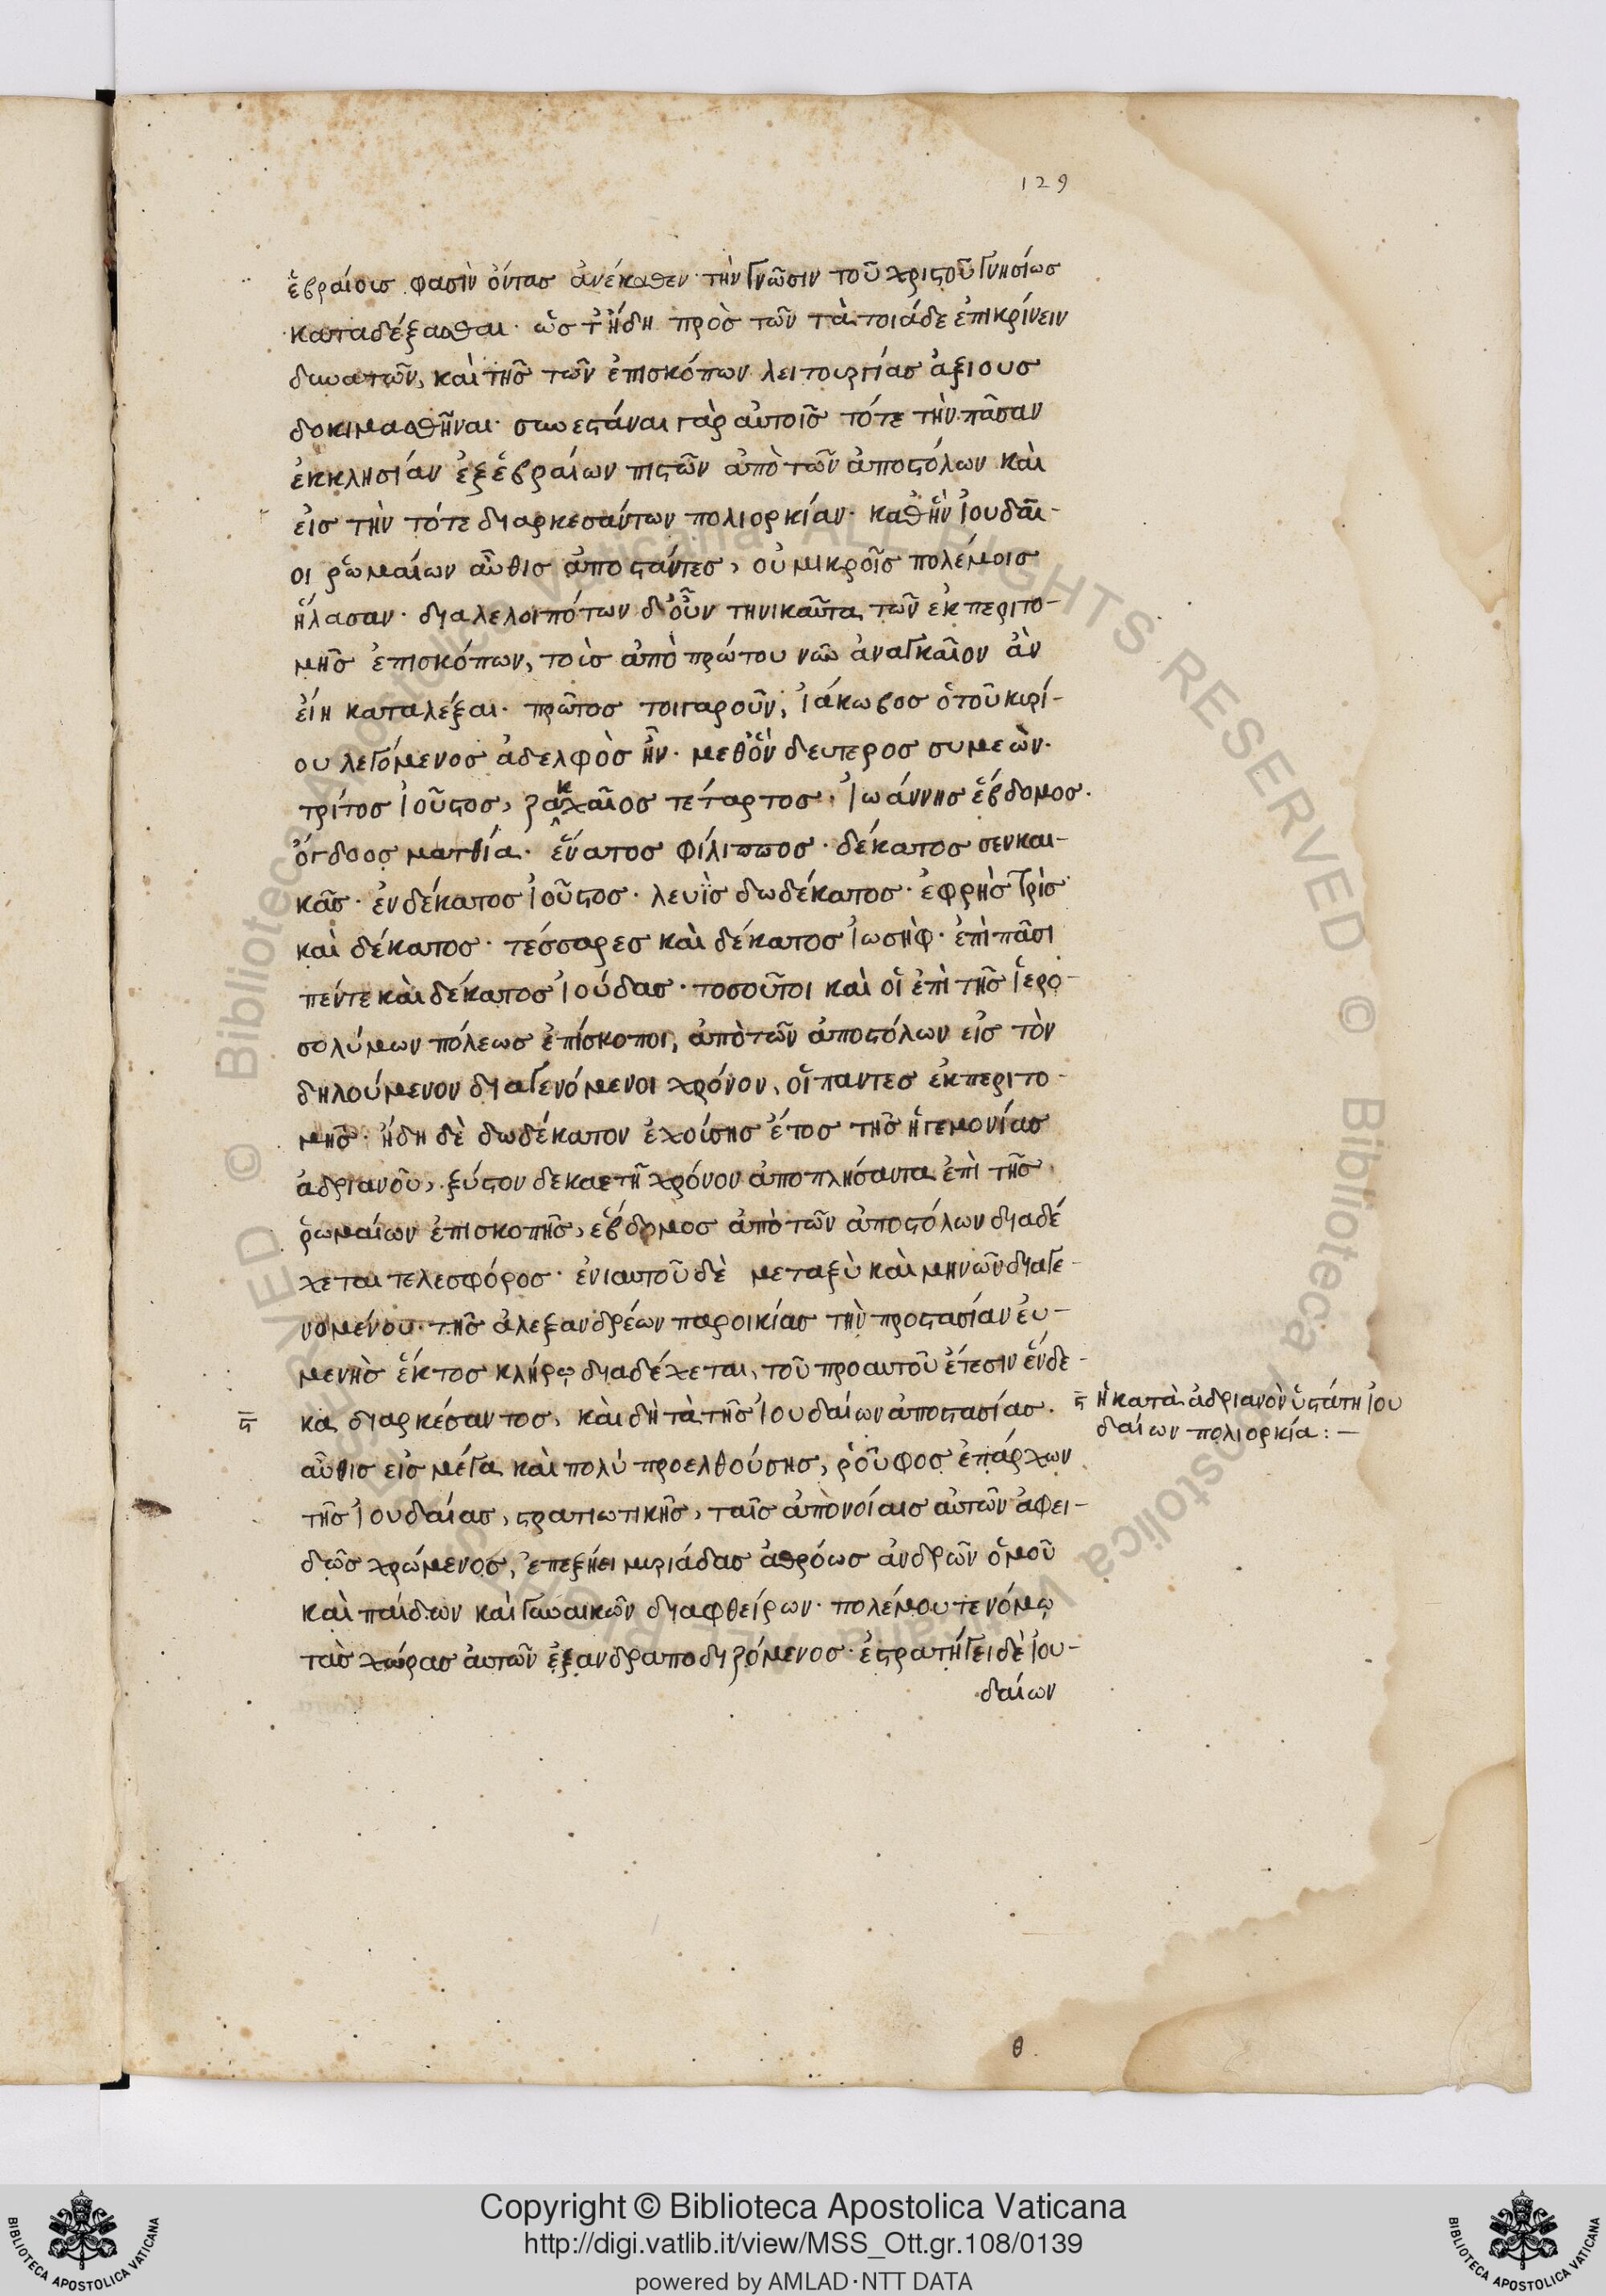 129
ἑβραίοις φασὶν ὄντας ἀνέκαθεν τὴν γνῶσιν τοῦ χριστοῦ γνησίως
καταδέξασθαι· ὡς τ' ἤδη πρὸς τῶν τὰ τοιάδε ἐπικρίνειν
δυνατῶν, καὶ τῆς τῶν ἐπισκόπων λειτουργίας ἀξιους
δοκιμασθῆναι· συνεστάναι γὰρ αὐτοῖς τότε τὴν πᾶσαν
ἐκκλησίαν ἐξ ἑβραίων πιστῶν ἀπὸ τῶν ἀποστόλων καὶ
εἰς τὴν τότε διαρκεσάντων πολιορκίαν· καθ' ἣν ἰουδαῖ-
οι ῥωμαίων αὖθις ἀποστάντες, οὐ μικροῖς πολέμοις
ἥλασαν· διαλελοιπότων δ' οὖν τηνικαῦτα τῶν ἐκ περιτο-
μῆς ἐπισκόπων, τοὺς ἀπὸ πρώτου νῦν ἀναγκαῖον ἂν
εἴη καταλέξαι· πρῶτος τοιγαροῦν, ἰάκωβος ὁ τοῦ κυρί-
ου λεγόμενος ἀδελφὸς ἦν· μεθ' ὃν δευτερος συμεὼν·
τρίτος ἰοῦστος, ζακχαῖος τέταρτος· ἰωάννης ἕβδομος·
ὄγδοος ματθία· ἔνατος φίλιππος· δέκατος σενκαι-
κᾶς· ἑνδέκατος ἰοῦστος· λευῒς δωδέκατος· ἐφρὴς τρὶς
καὶ δέκατος· τέσσαρες καὶ δέκατος ἰωσὴφ· ἐπὶ πᾶσι
πέντε καὶ δέκατος ἰούδας· τοσοῦτοι καὶ οἱ ἐπὶ τῆς ἱερο-
σολύμων πόλεως ἐπίσκοποι, ἀπὸ τῶν ἀποστόλων εἰς τὸν
δηλούμενον διαγενόμενοι χρόνον, οἱ παντες ἐκ περιτο-
μῆς· ἤδη δὲ δωδέκατον ἐχούσης ἔτος τῆς ἡγεμονίας
ἀδριανοῦ, ξύστον δεκαετῆ χρόνον ἀποπλήσαντα ἐπὶ τῆς
ῥωμαίων ἐπισκοπῆς, ἕβδομος ἀπὸ τῶν ἀποστόλων διαδέ
χεται τελεσφόρος· ἐνιαυτοῦ δὲ μεταξὺ καὶ μηνῶν διαγε-
νομένου· τῆς ἀλεξανδρέων παροικίας τὴν προστασίαν εὐ-
μενὴς ἕκτος κλήρῳ διαδέχεται, τοῦ προ αυτοῦ ἔτεσιν ἕνδε-
ϛ κα διαρκέσαντος, καὶ δὴ τὰ τῆς ἰουδαίων ἀποστασίας·
ϛ ἡ κατὰ ἀδριανὸν ὑστάτη ἰου
δαίων πολιορκία: –
αὖθις εἰς μέγα καὶ πολύ προελθούσης, ῥοῦφος ἐπάρχων
τῆς ἰουδαίας, στρατιωτικῆς, ταῖς ἀπονοίαις αὐτῶν ἀφει-
δῶς χρώμενος, ἐπεξήει μυριάδας ἀθρόως ἀνδρῶν ὁμοῦ
καὶ παίδων καὶ γυναικῶν διαφθείρων· πολέμου τε νόμῳ
τὰς χώρας αὐτῶν ἐξανδραποδιζόμενος· ἐστρατήγει δὲ ἰου-
δαίων
θ
Copyright © Biblioteca Apostolica Vaticana
http://digi.vatlib.it/view/MSS_Ott.gr.108/0139
powered by AMLAD·NTT DATA